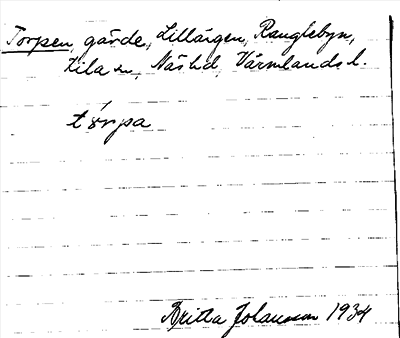 Torpen, gärde, Lillängen, Ranglebyn,
Kila sn, Näs hd, Värmlands l.
tórpa
Britta Johansson 1934